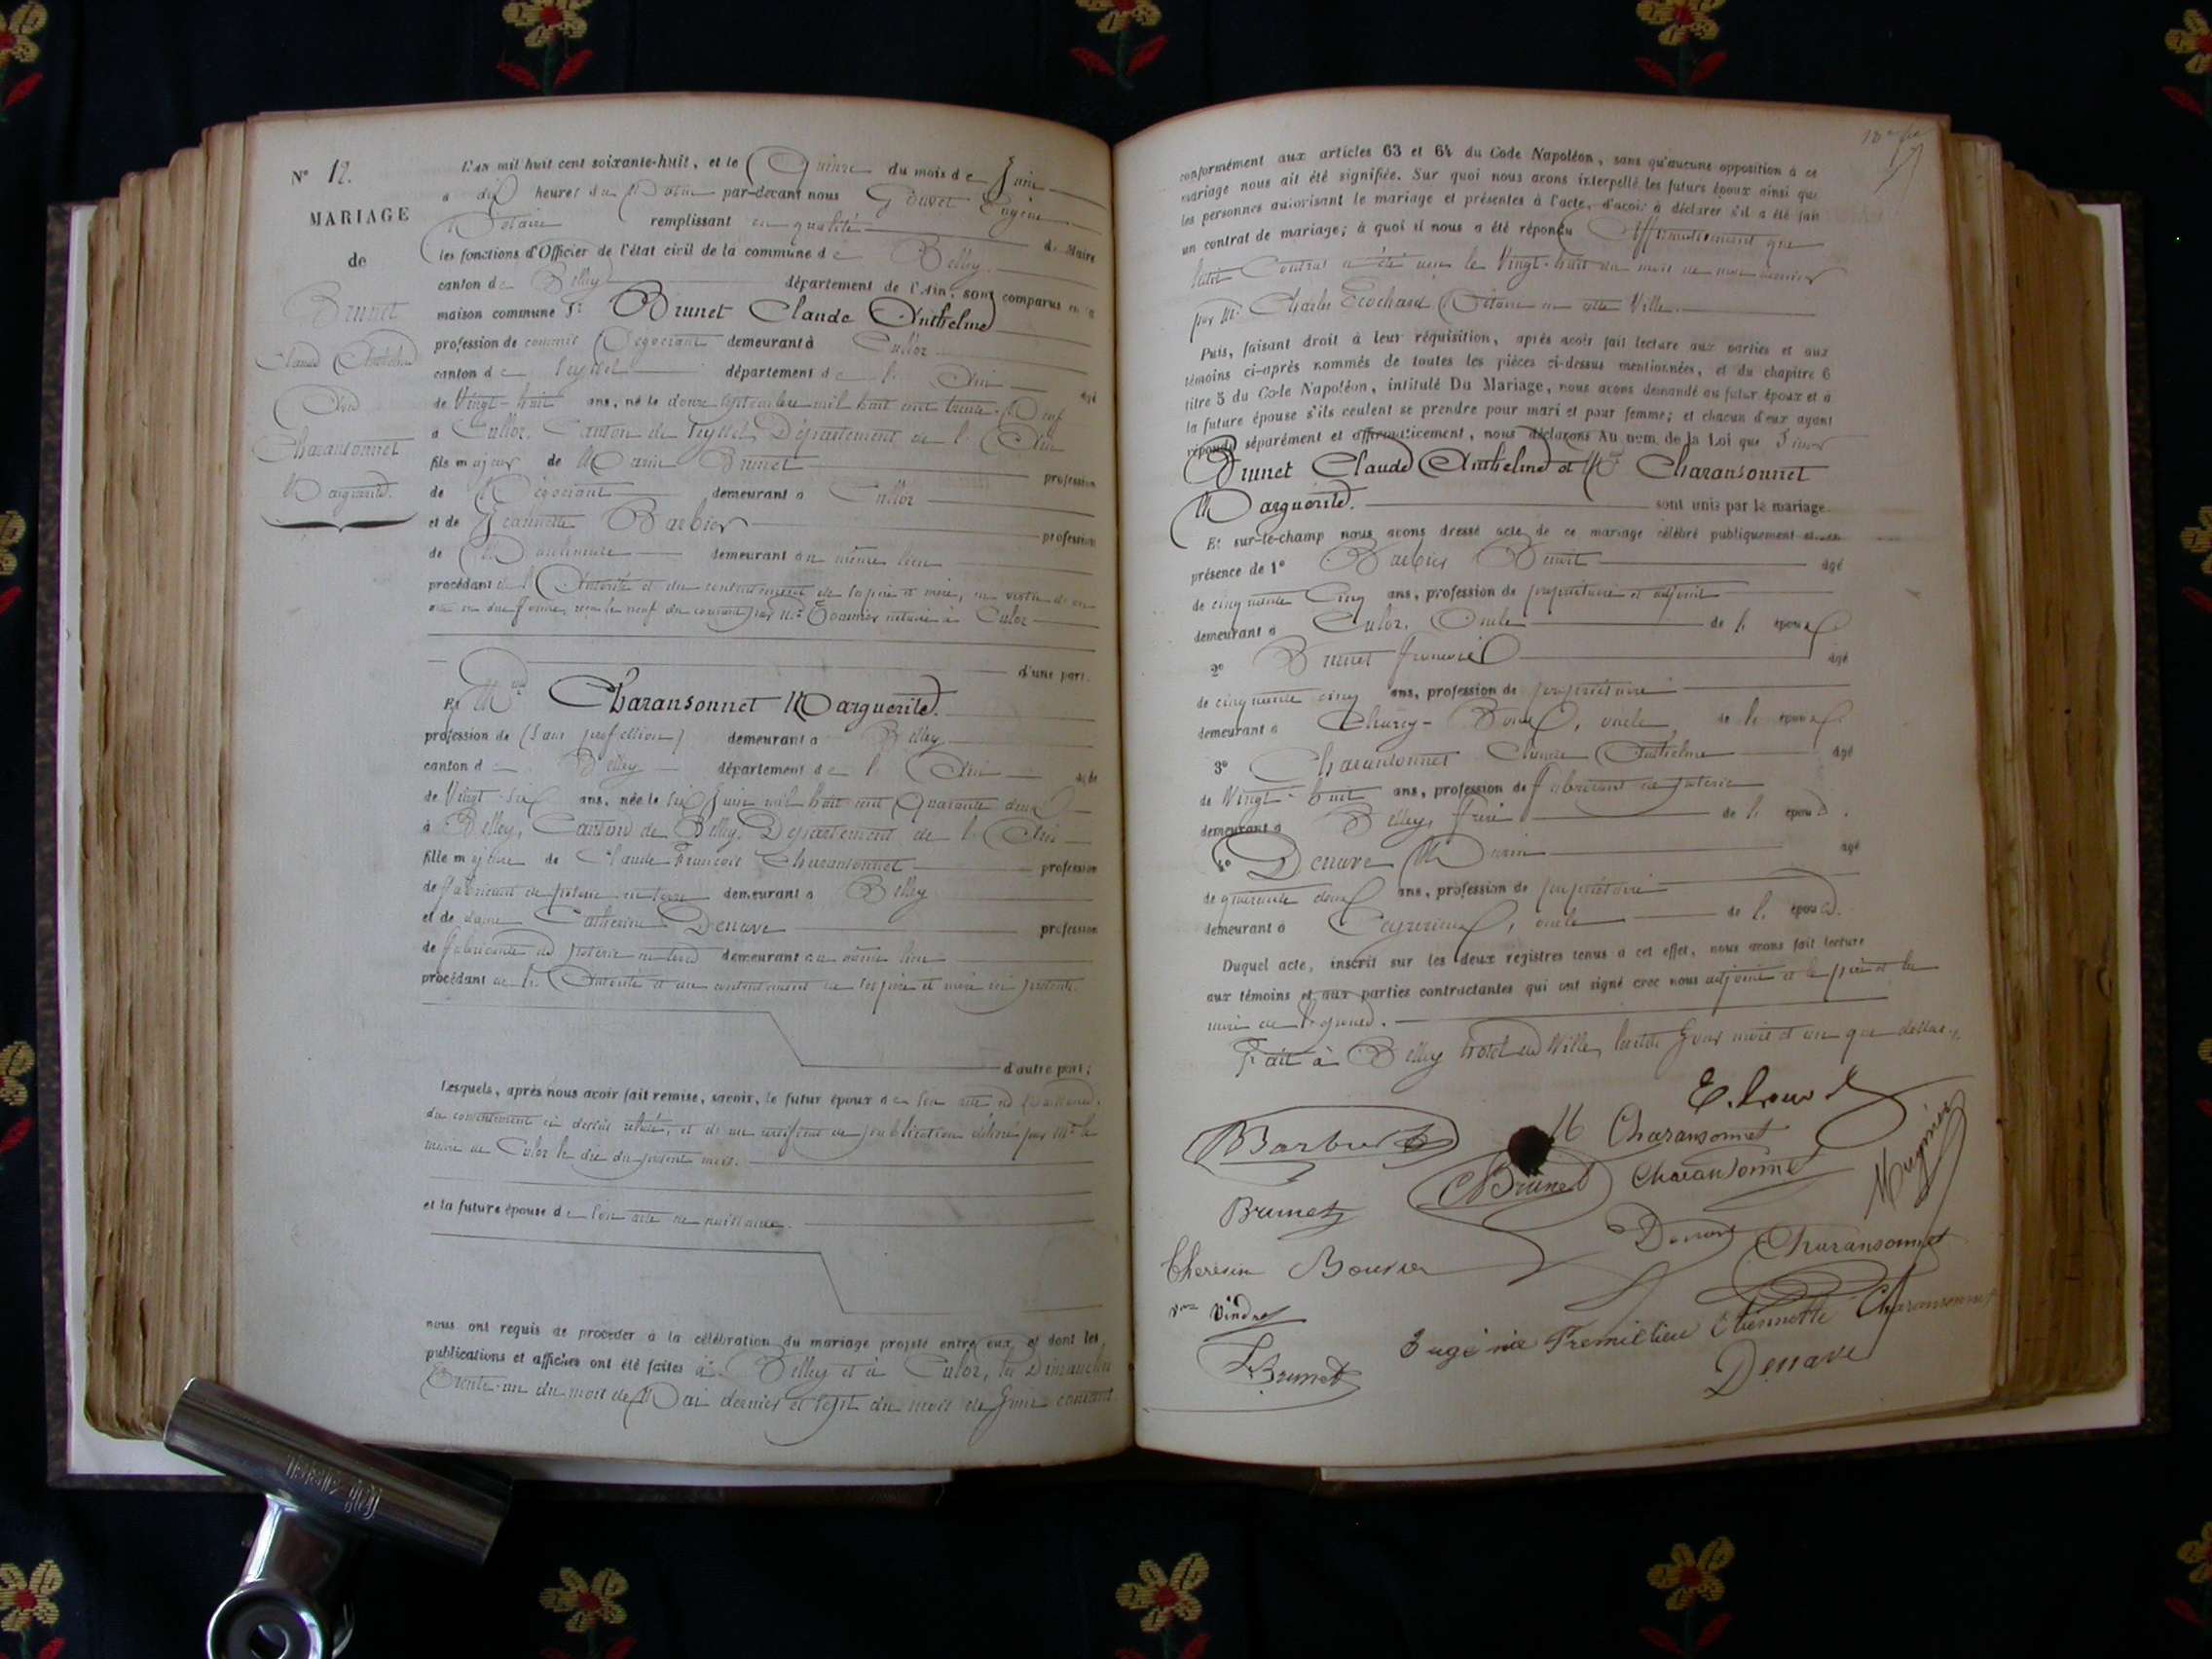 N° 12.
MARIAGE
de
Brunet
Claude Anthelme
Avec
Charansonnet
Marguerite.
L'an mil huit cent soixante-huit, et le Quinze du mois de Juin
a dix heures du Matin par-devant nous Eugène
Notaire remplissant en qualité de Maire
les fonctions d'Officier de l'état civil de la commune de Belley.
canton de Belley département de l'Ain, sont comparus en la
maison commune Sr Brunet Claude Anthelme
profession de commis Négociant demeurant à Culloz
canton de Seyssel département de l'Ain âgé
de Vingt-huit ans, né le douze septembre mil huit cent trente-Neuf
a Culloz. Canton de Seyssel, Département de l'Ain
fils majeur de Marin Brunet profession
de Négociant demeurant a Culloz
et de Jeannette Barbier profession
de demeurant au même lieu
procédant de l'Autorité et du consentement de ses père et mère, en vertu d'un
acte en due forme, reçu le neuf du courant par Me notaire à Culoz
d'une part.
Et Mlle Charansonnet Marguerite.
profession de (sans profession) demeurant a Belley
canton de Belley département de l'Ain âgée
de Vingt-six ans, née le six Juin mil huit cent Quarante deux
à Belley, Canton de Belley, Département de l'Ain
fille majeure de Claude François Charansonnet profession
de fabricant de poterie en terre demeurant a Belley
et de dame Catherine Denave profession
de fabricante de poterie en terre demeurant au même lieu
procédant de l'Autorité et du consentement de ses père et mère ici présents
d'autre part;
Lesquels, après nous avoir fait remise, savoir, le futur époux de son acte de naissance,
du consentement ci dessus relaté, et de un certificat de publication délivré par Mr le
maire de Culoz le dix du présent mois.
et la future épouse de son acte de naissance.
nous ont requis de procéder à la célébration du mariage projeté entre eux, et dont les
publications et affiches ont été faites à Belley et à Culoz, les Dimanches
Trente-un du mois de Mai dernier et sept du mois de Juin courant
conformément aux articles 63 et 64 du Code Napoléon, sans qu'aucune opposition à ce
mariage nous ait été signifiée. Sur quoi nous avons interpellé les futurs époux ainsi que
les personnes autorisant le mariage et présentes à l'acte, d'avoir à déclarer s'il a été fait
un contrat de mariage; à quoi il nous a été répondu Affirmativement que
ledit Contrat a été reçu le Vingt-huit du mois de mai dernier
par Me Charles Ecochard Notaire en cette Ville.
Puis, faisant droit à leur réquisition, après avoir fait lecture aux parties et aux
témoins ci-après nommés de toutes les pièces ci-dessus mentionnées, et du chapitre 6
titre 5 du Code Napoléon, intitulé Du Mariage, nous avons demandé au futur époux et à
la future épouse s'ils veulent se prendre pour mari et pour femme; et chacun d'eux ayant
répondu séparément et affirmativement, nous déclarons Au nom de la Loi que Sieur
Brunet Claude Anthelme et Mlle Charansonnet
Marguerite. sont unis par le mariage.
Et sur-le-champ nous avons dressé acte de ce mariage célébré publiquement et en
présence de 1° Barbier Benoit âgé
de cinquante Cinq ans, profession de propriétaire et adjoint
demeurant à Culoz, Oncle de l'époux
2° Brunet François âgé
de cinquante cinq ans, profession de propriétaire
demeurant à oncle de l'époux.
3° Charansonnet Claude Anthelme âgé
de Vingt-huit ans, profession de fabricant de poterie
demeurant à Belley, frère de l'épouse.
4° Denave Marin âgé
de quarante deux ans, profession de propriétaire
demeurant à Ceyzerieux, oncle de l'épouse.
Duquel acte, inscrit sur les deux registres tenus à cet effet, nous avons fait lecture
aux témoins et aux parties contractantes qui ont signé avec nous adjoint et le père et la
mère de l'épouse.
Fait à Belley hotel de Ville, lesdits Jour mois et an que dessus.
Barbier
M Charansonnet
CBrunet
Charansonnet
Mugnier
Brunet
Denave
Charansonnet
Bouvier
Vindret
Eugénie Tremillieu
Etiennette Charansonnet
Brunet
Denave